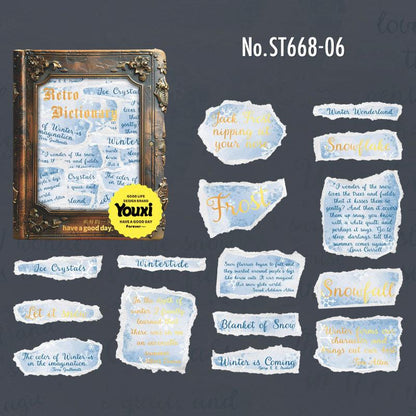 No.ST668-06
Retro
Dictionary
Ice Crystals
of Winter
imagination
land
GOOD LIFE
DESIGN BRAND
Youxi
HAVE A GOOD DAY
Forever
have a good day
Jack Frost
nipping at
your nose
Winter Wonderland
Snowflake
Frost
"I wonder if the snow
loves the trees and fields,
that it kisses them so
gently? And then it covers
them up snug, you know,
with a white quilt; and
perhaps it says, Go to
sleep, darlings, till the
summer comes again."
Lewis Carroll
Ice Crystals
Wintertide
Snow flurries began to fall and
they swirled around people's legs
like house cats. It was magical,
this snow globe world.
Sarah Addison Allen
Snowfall
Let it snow
In the depth of
winter, I finally
learned that
there was in me
an invincible
summer.
Blanket of Snow
Winter forms our
character and
brings out our best.
Tom Allen
The color of winter is
in the imagination.
Terri Guillemets
Winter is Coming